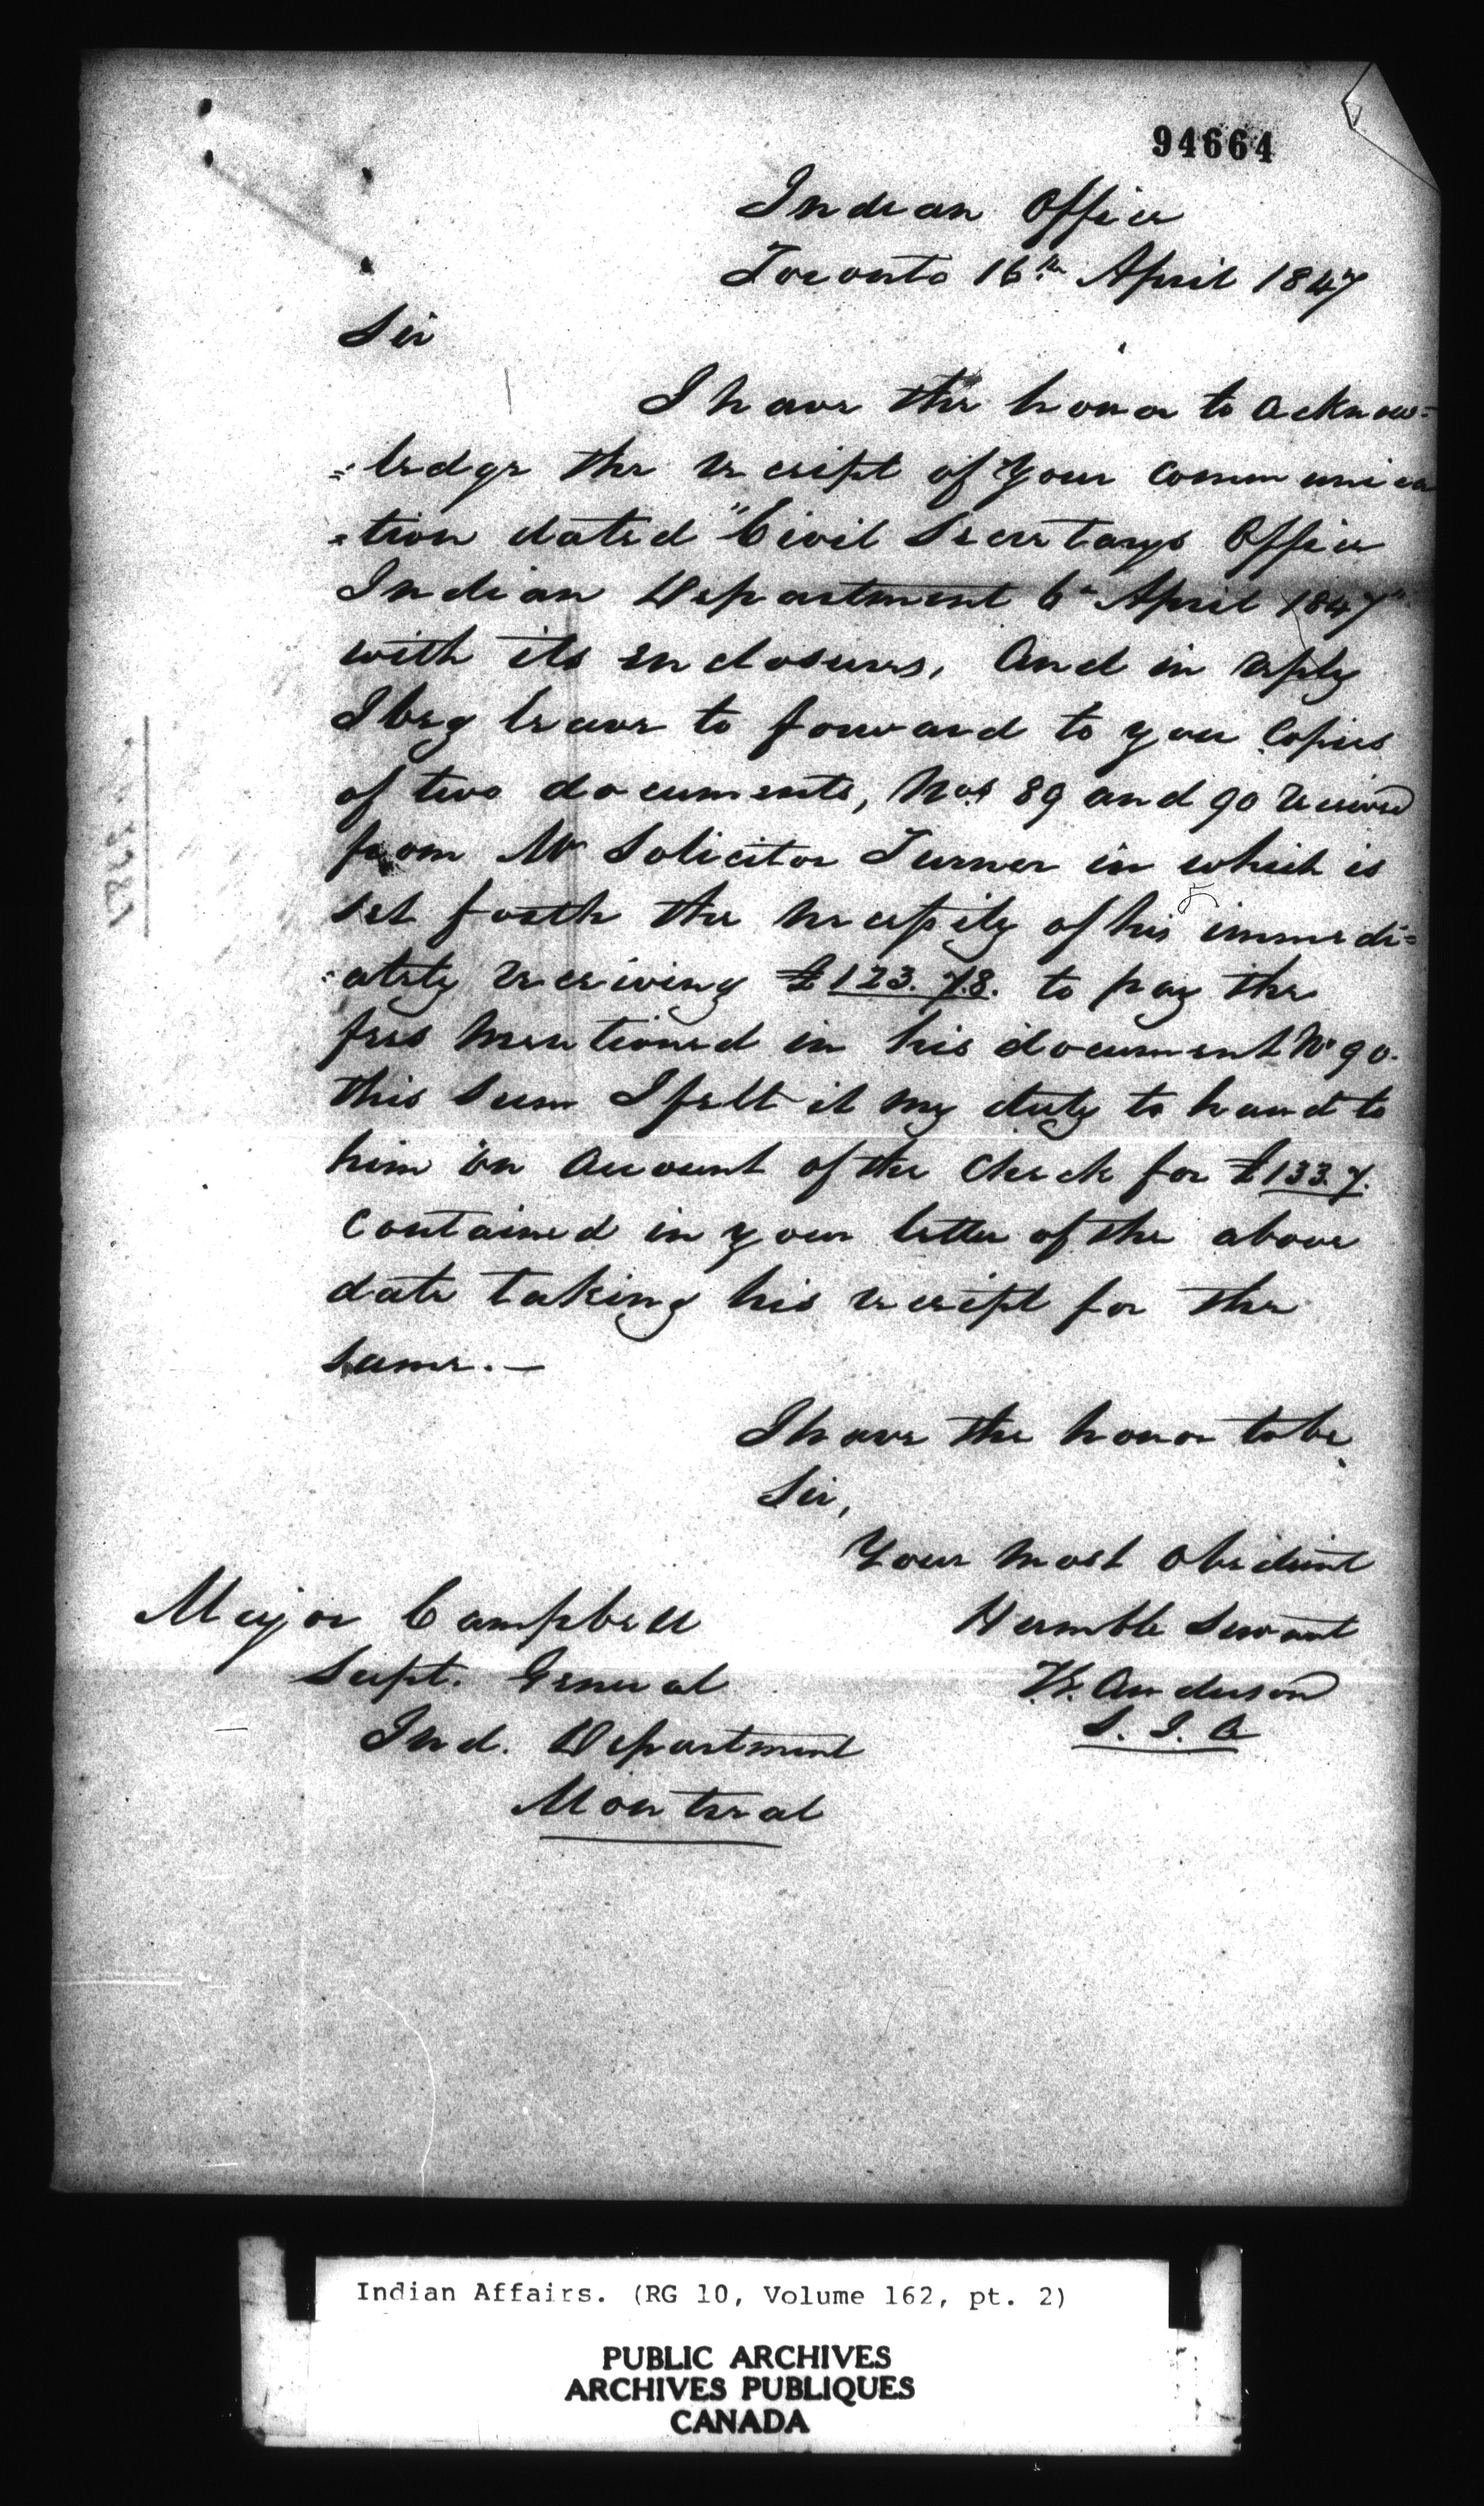 94664
Indian Office
Toronto 16th April 1847
Sir
I have the honor to acknow=
=ledge the receipt of your communica
=tion dated "Civil Secretarys Office
Indian Department 6th April 1847"
with its enclosures, and in reply
I beg leave to forward to you Copies
of two documents, Nos 89 and 90 received
from Mr Solicitor Turner in which is
set forth the necessity of his immedi=
=ately receiving £123.7.8. to pay the
fees mentioned in his document No 90.
this sum I felt it my duty to hand to
him on account of the Check for £133.7.
contained in your letter of the above
date taking his receipt for the
same.—
I have the honor to be
Sir,
Your most obedient
Humble Servant
Anderson
S. I. A
Major Campbell
Supt. General
Ind. Department
Montreal
Indian Affairs. (RG 10, Volume 162, pt. 2)
PUBLIC ARCHIVES
ARCHIVES PUBLIQUES
CANADA